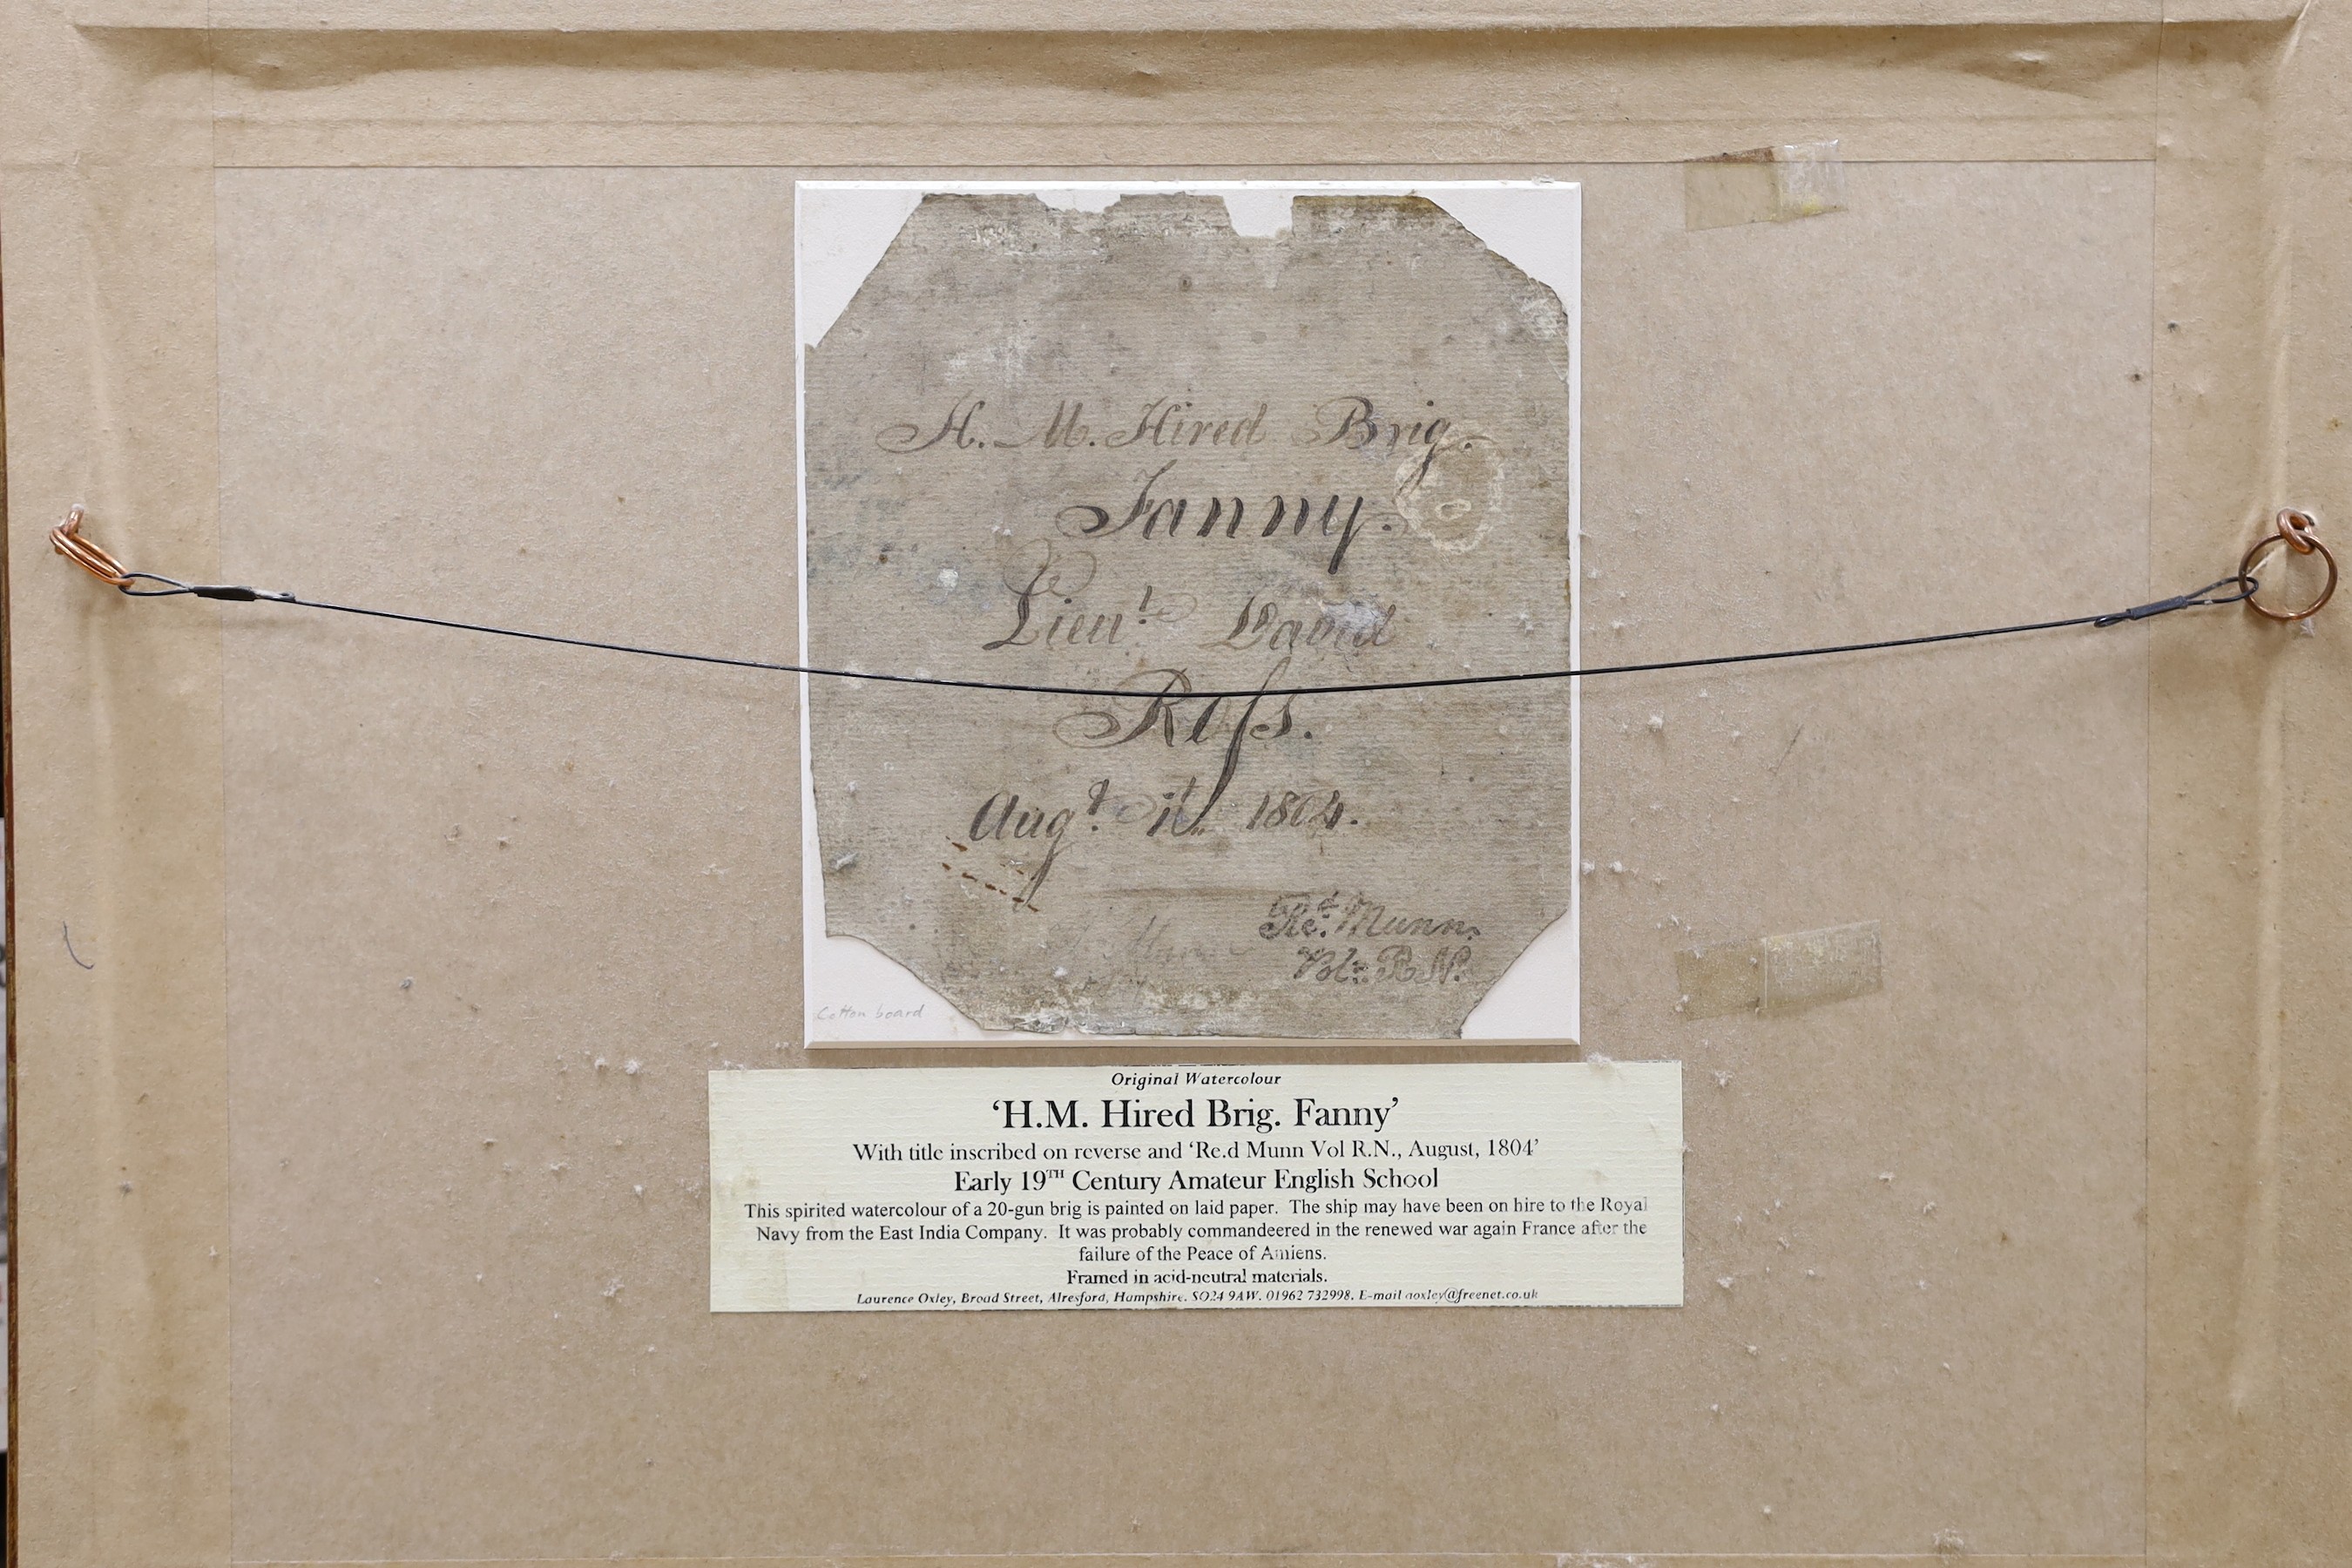 H. M. Hired Brig.
Fanny.
Lieut. David
Roſs.
Augt. 1t. 1804.
Red. Munn.
Vol: R.N.
Cotton board
Original Watercolour
‘H.M. Hired Brig. Fanny’
With title inscribed on reverse and ‘Re.d Munn Vol R.N., August, 1804’
Early 19TH Century Amateur English School
This spirited watercolour of a 20-gun brig is painted on laid paper. The ship may have been on hire to the Royal
Navy from the East India Company. It was probably commandeered in the renewed war again France after the
failure of the Peace of Amiens.
Framed in acid-neutral materials.
Laurence Oxley, Broad Street, Alresford, Hampshire. SO24 9AW. 01962 732998. E-mail aoxley@freenet.co.uk